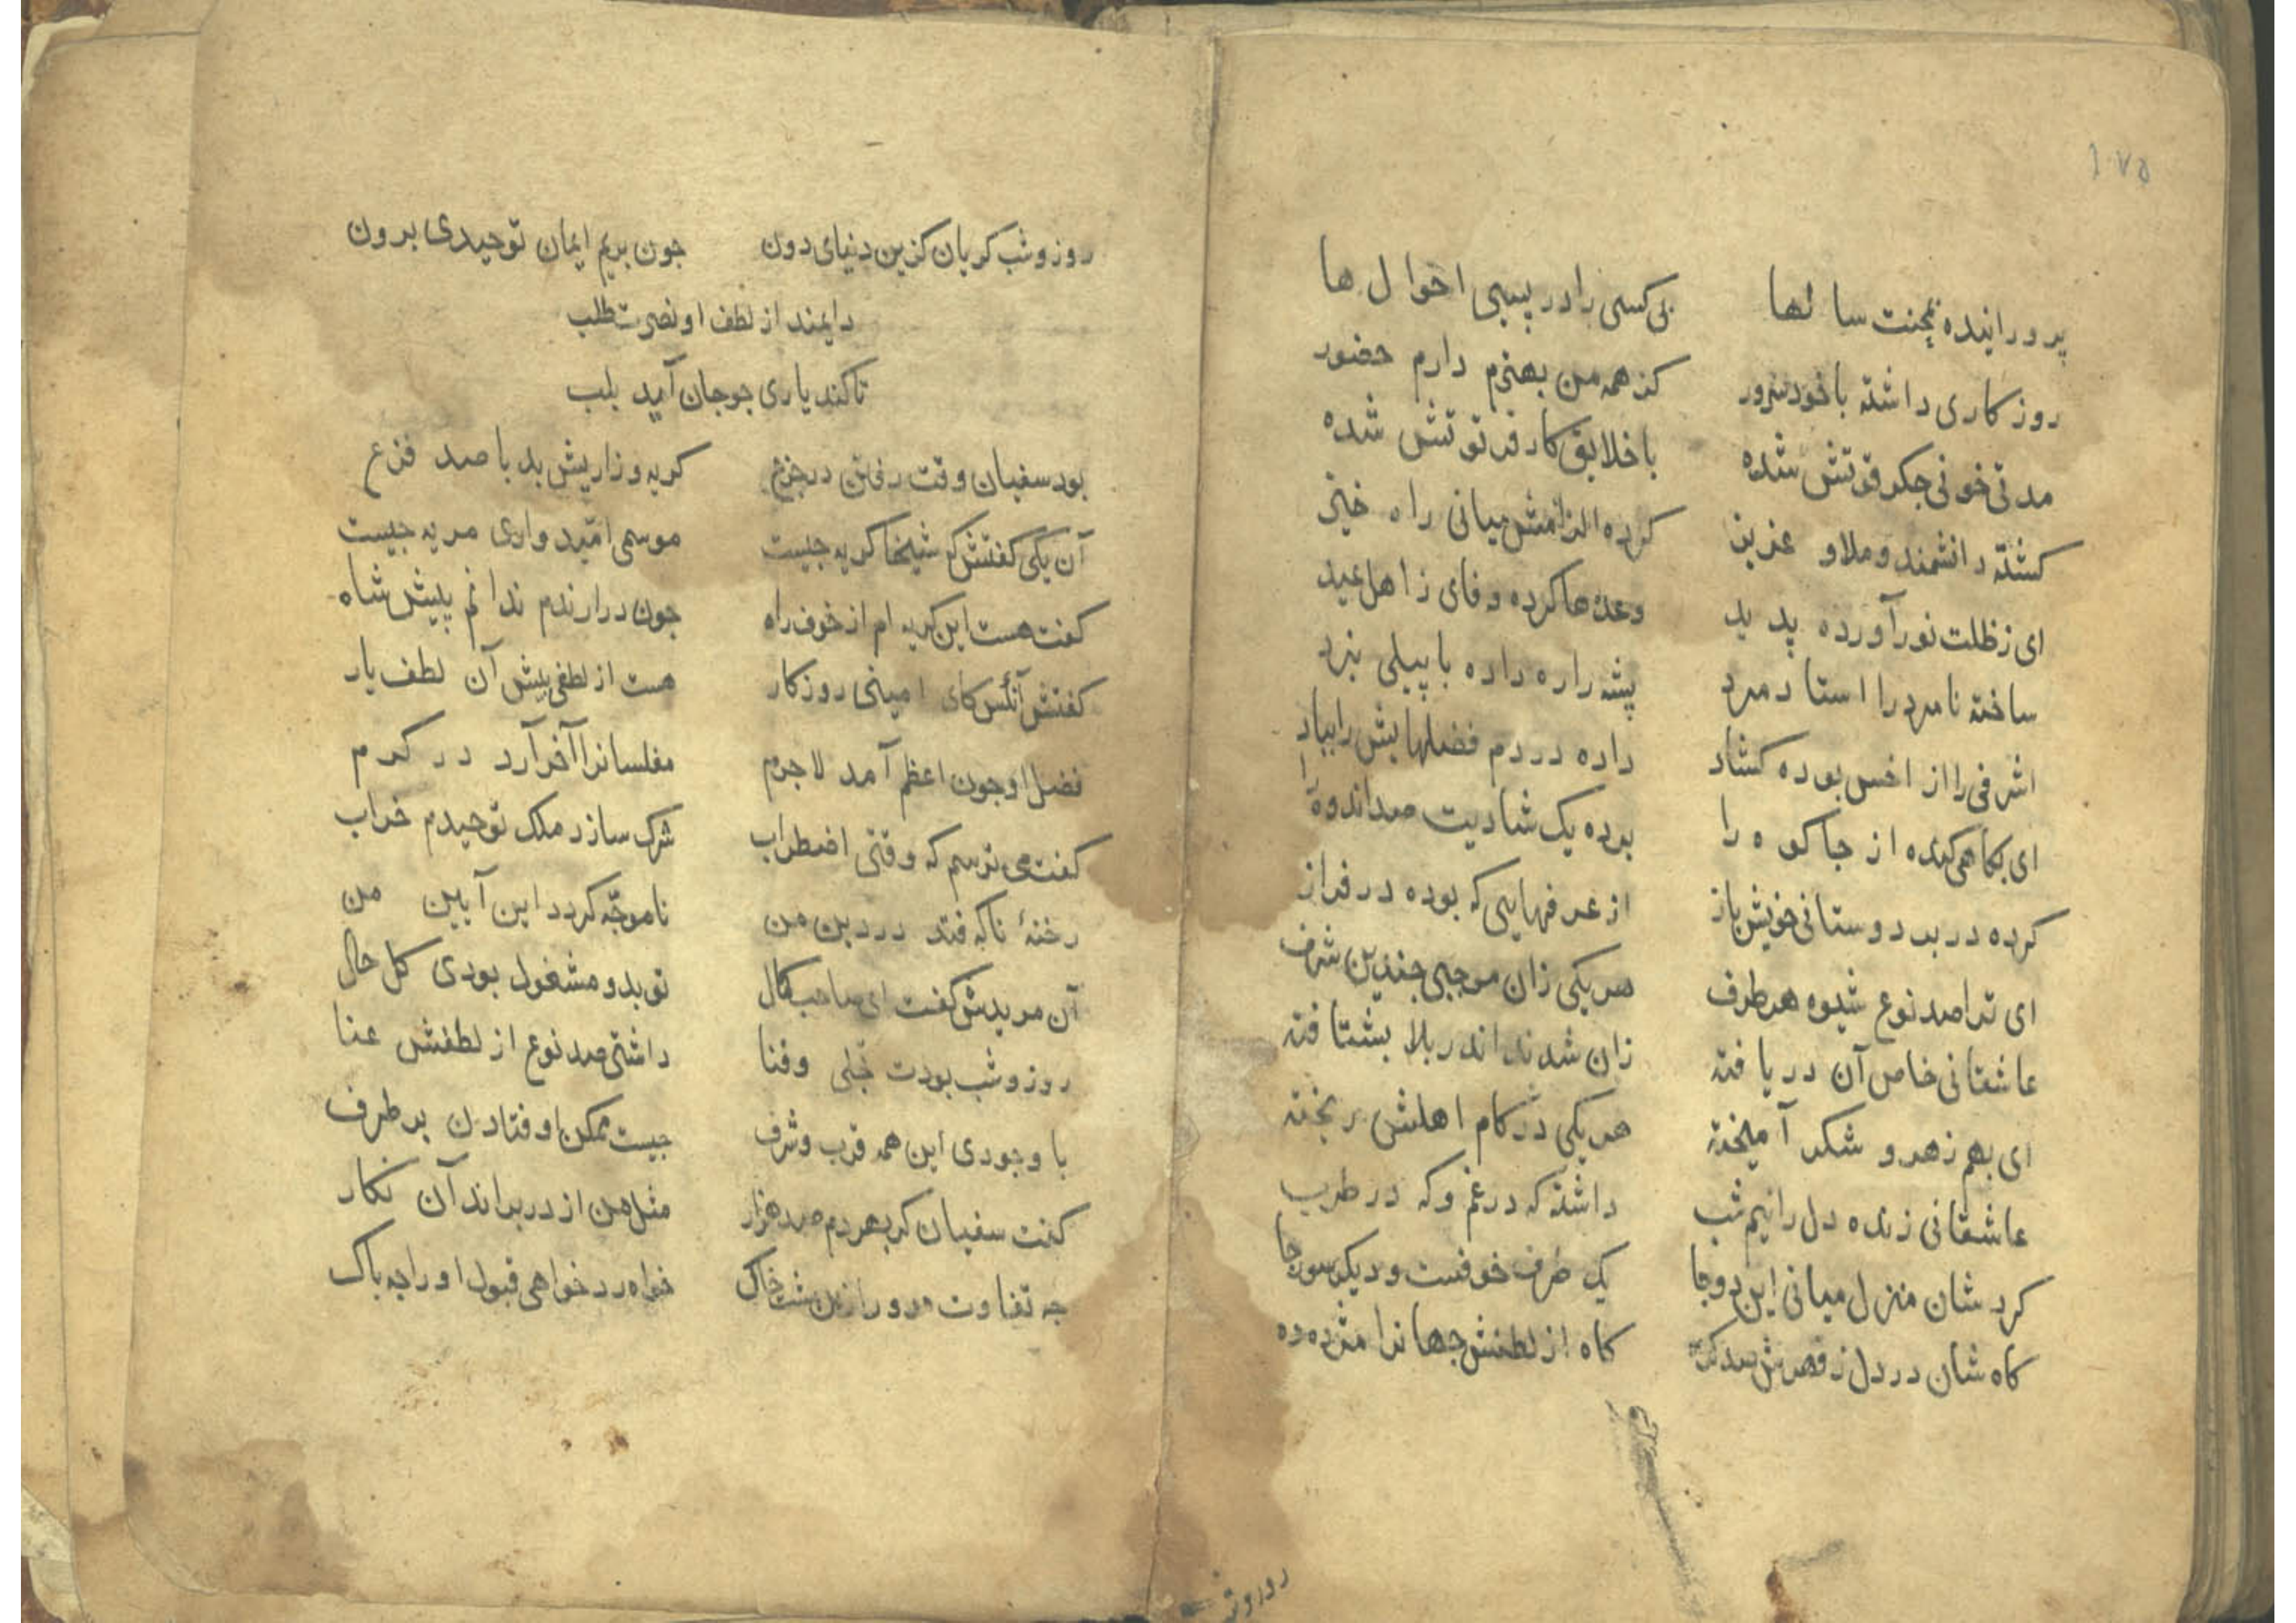 ۱۷۵
پرورانیده بمحنت سالها بی کسی را در پسیی احوال ها
روزکاری داشته با خود سرور کز همه من بهترم دارم حضور
مدتی خونی جکر قوتش شده با خلایق کار فرتوتش شده
کشته دانشمند و ملا و عزیز کرده الزامش میانی راه خیز
ای ز ظلت نور آورده پدید وعدها کرده وفای ز اهل عید
ساخته نامرد را استاد مرد پشه را ره داده با پیلی نبرد
اشرفی را از اخس بوده کشاد داده در دم فضلهایش را بباد
ای بکاهی کنده از جا کوه را بوده یک شادیت صد اندوه را
کرده در بر دوستانی خویش باز از عرفهایی که بوده در فراز
ای ترا صد نوع شیوه هر طرف هر یکی زان موجبی جندین شرف
عاشقانی خاص آن دریافته زان شدند اندر بلا بشتافته
ای بهم زهر و شکر آمیخته هر یکی در کام اهلش ریخته
عاشقانی زنده دل را نیم شب داشته که در غم و که در طرب
کرد شان منزل میانی این دو جا یک طرف خوفست و دیکر سو رجا
کاه شان در دل ز قهرش کاه از لطفش جهانرا مژده ده
روز و شب
روز و شب کریان کزین دنیای دون جون بریم ایمان توحیدی برون
دایمند از لطف او نصرت طلب
تا کند یاری جو جان آید بلب
بود سفیان وقت رفتن در جزع کریه و زاریش بد با صد فزع
آن یکی کفتش که شیخا کریه جیست موسمی امیدواری مریه جیست
کفت هست این کریه ام از خوف راه جون درارندم ندانم پیش شاه
کفتش آنکس کای امینی روزکار هست از لطفی بیش آن لطف یار
فضل او جون اعظم آمد لاجرم مفلسانرا آخر آرد در کرم
کفت می ترسم که وقتی اضطراب شرک سازد ملک توحیدم خراب
رخنۀ ناکه فتد در دین من ناموجّه کردد این آیین من
آن مریدش کفت ای صاحب کمال تو بدو مشغول بودی کل حال
روز و شب بودت تجلی و فنا داشتی صد نوع از لطفش عنا
با وجودی این همه قرب و شرف جیست ممکن اوفتادن بر طرف
کفت سفیان کر بهر دم صد هزار مثل من از در براند آن نکار
جه تفاوت مر ورا زین مشت خاک خواه رد خواهی قبول او را جه باک